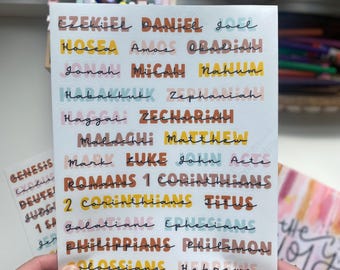 EZEKIEL DANIEL Joel
HOSEA Amos OBADIAH
Jonah MICAH NAHUM
HABAKKUK Zephaniah
Haggai ZECHARIAH
MALACHI MATTHEW
MARK LUKE JOHN Acts
ROMANS 1 CORINTHIANS
2 CORINTHIANS TITUS
galatians EPHESIANS
PHILIPPIANS PHILEMON
COLOSSIANS HEBREWS
GENESIS